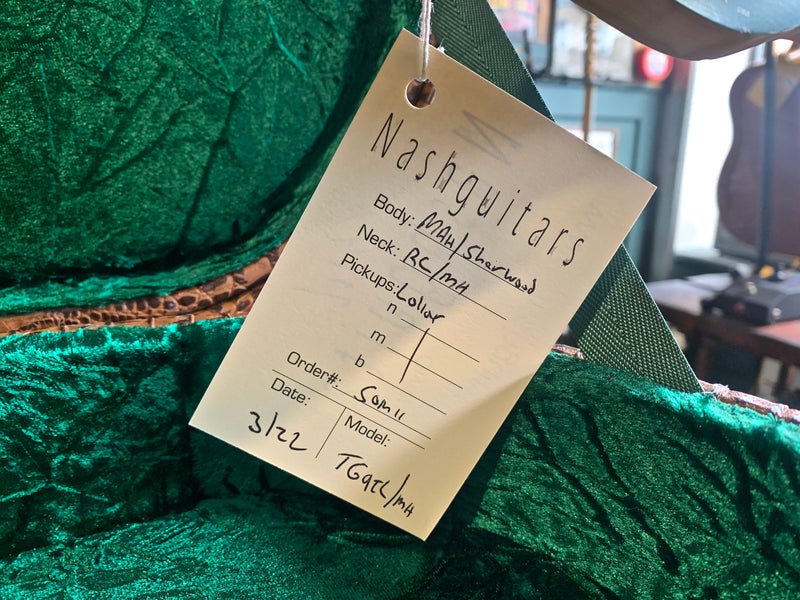 Nashguitars
Body: MAH/Sherwood
Neck: RC/MH
Pickups: Lollar
n
m
b
Order#: Som11
Date: 3/22
Model: TG9TL/MH